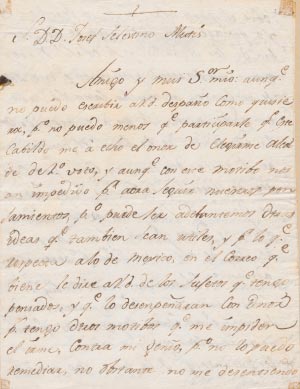 S. D. D. Josef Selerono Mutis
Amigo y mui S.or mio: aunq.e
no puedo escribir a Vd. despacio como quisie
ra, p.r no puedo menos q.e participarle q.e este
Cabildo me a echo el onor de elegirme alcal
de de 2.o voto, y aunq.e con este motibo me
an impedido p.a seguir nuestros pen
samientos, p.r puede ser adelantemos otras
ideas q.e tambien sean utiles, y p.r lo q.e
respecta a lo de mexico, en el correo q.e
viene le dire a Vd. de los sujetos q.e tengo
pensados, y q.e lo desempeñaran con onor
p.r tengo otros motibos q.e me impiden
el irme, contra mi genio, p.r no lo puedo
remediar, no obstante no me desentiendo